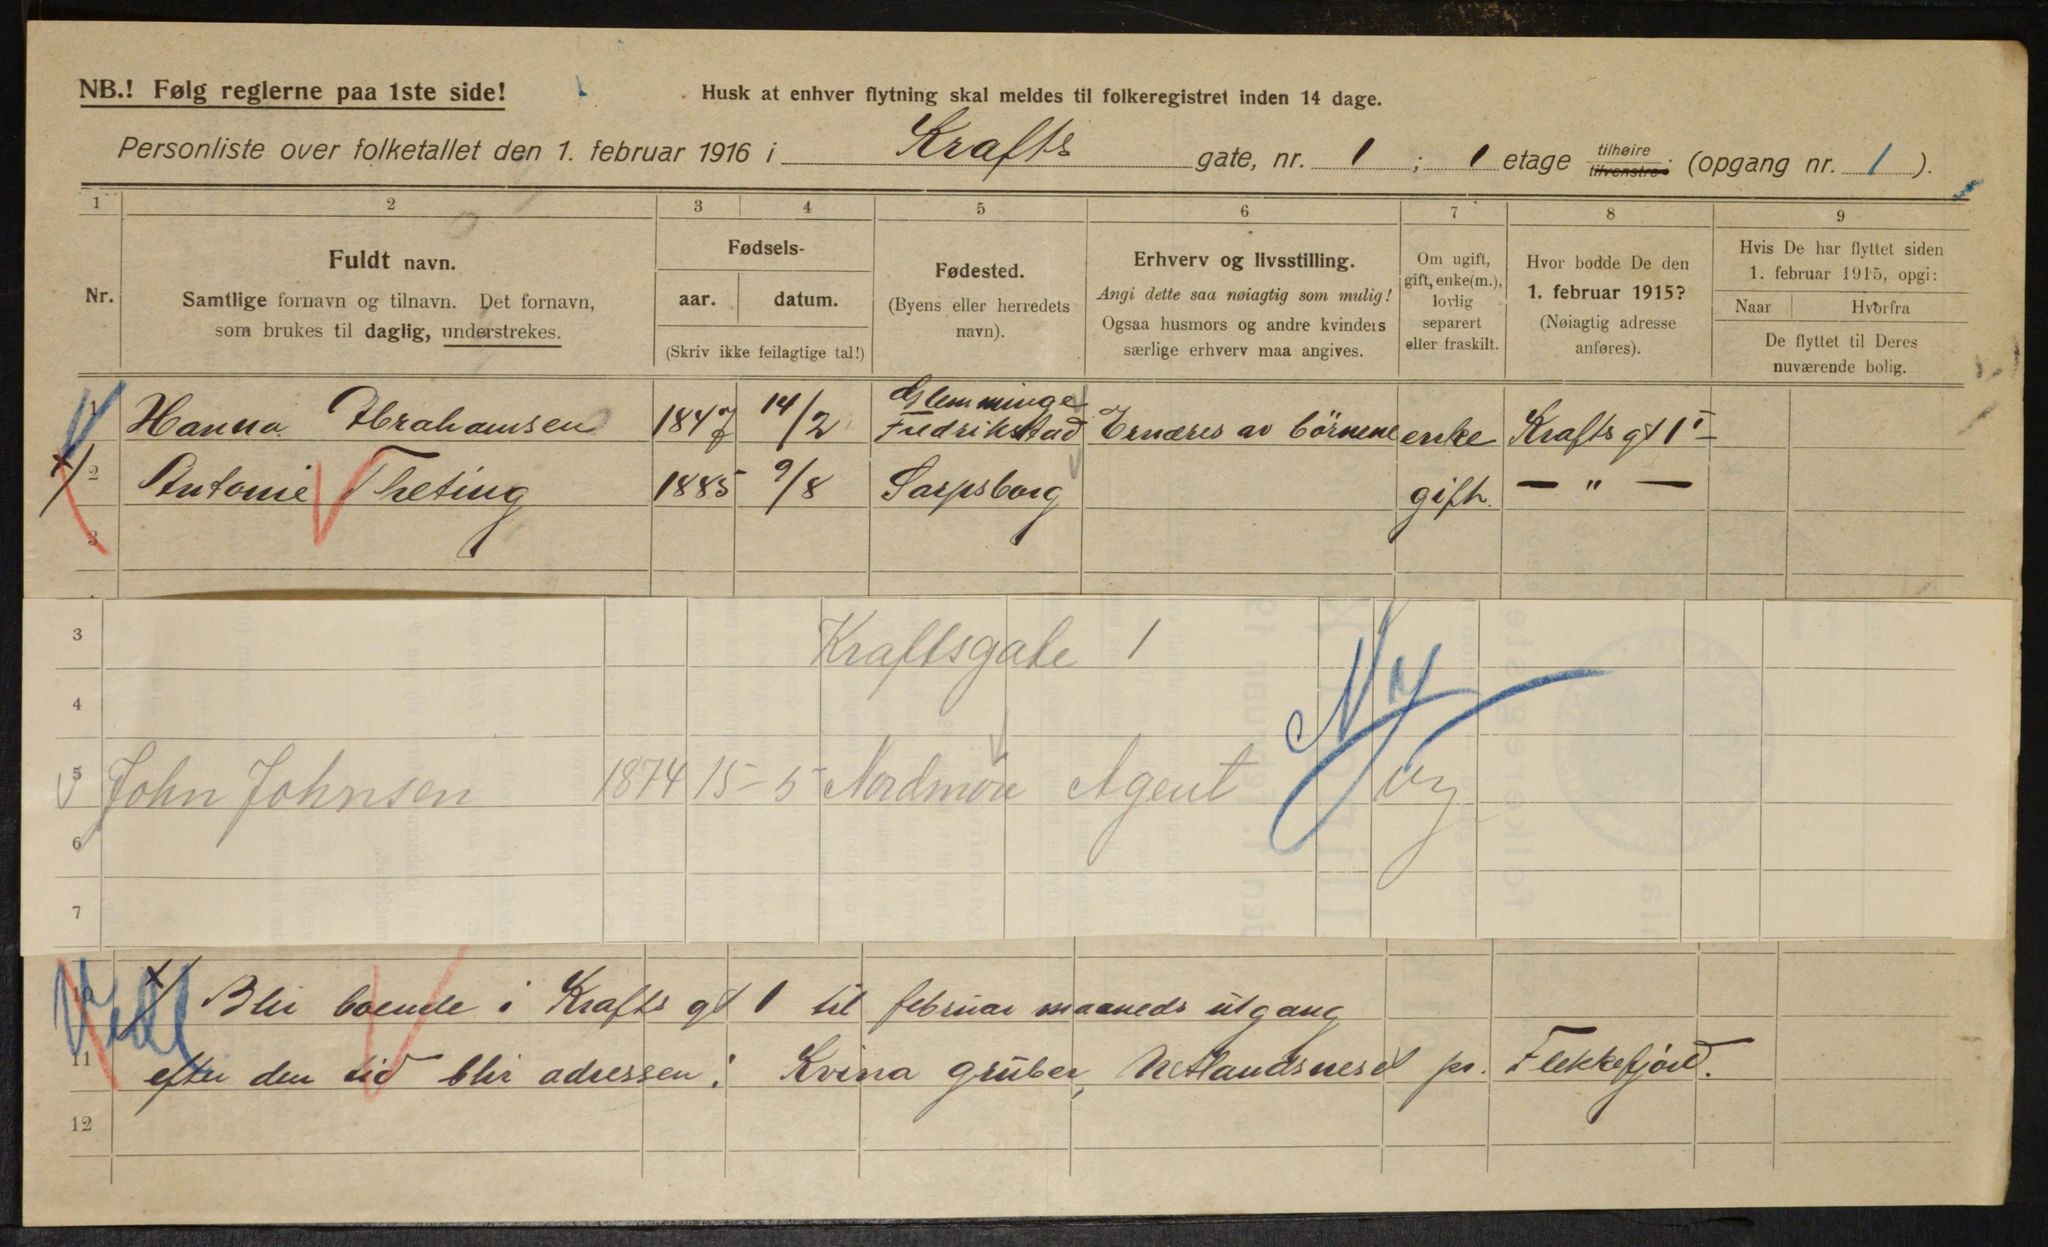 NB.! Følg reglerne paa 1ste side!
Husk at enhver flytning skal meldes til folkeregistret inden 14 dage.
Personliste over folketallet den 1. februar 1916 i Krafts gate, nr. 1 ; 1 etage tilhøire tilvenstre (opgang nr. 1 ).
1 2 3 4 5 6 7 8 9
Nr.
Fuldt navn.
Samtlige fornavn og tilnavn. Det fornavn,
som brukes til daglig, understrekes.
Fødsels-
aar. datum.
(Skriv ikke feilagtige tal!)
Fødested.
(Byens eller herredets
navn).
Erhverv og livsstilling.
Angi dette saa nøiagtig som mulig!
Ogsaa husmors og andre kvinders
særlige erhverv maa angives.
Om ugift,
gift, enke(m.),
lovlig
separert
eller fraskilt.
Hvor bodde De den
1. februar 1915?
(Nøiagtig adresse
anføres).
Hvis De har flyttet siden
1. februar 1915, opgi:
Naar Hvorfra
De flyttet til Deres
nuværende bolig.
1 Hanna Abrahamsen 1847 14/2 Glemminge Fredrikstad Ernæres av börnene enke Krafts gt 1 I
x/ 2 Antonie Theting 1885 9/8 Sarpsborg gift. — " —
3
3 Kraftsgate 1
4 Ny
5 John Johnsen 1874 15-5 Nordmøre Agent ug
6
7
Vedl
x/ Blir boende i Krafts gt 1 til februar maaneds utgang
11 efter den tid blir adressen: Kvina gruber, Netlandsneset pr. Flekkefjord.
12